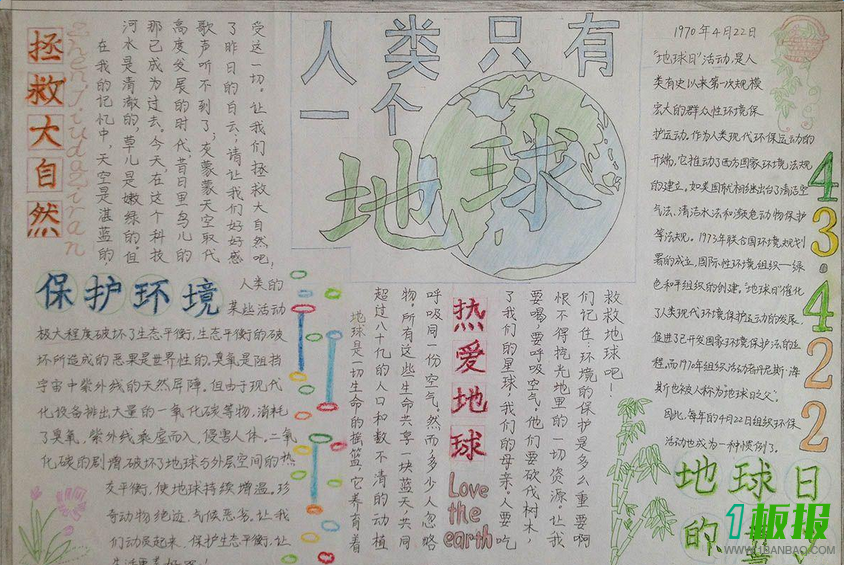 人类只有
一个
地球
拯救大自然
在我的记忆中，天空是湛蓝的
河水是清澈的，草儿是嫩绿的。但
那已成为过去。今天，在这个科技
高度发展的时代，昔日里鸟儿的
歌声听不到了；灰蒙蒙天空取代
了昨日的白云；请让我们好好感
受这一切。让我们拯救大自然吧，
保护环境
人类的
某些活动
极大程度破坏了生态平衡，生态平衡的破
坏所造成的恶果是世界性的，臭氧是阻挡
宇宙中紫外线的天然屏障。但由于现代
化设备排出大量的一氧化碳等物，消耗
了臭氧，紫外线乘虚而入，侵害人体。二氧
化碳的剧增，破坏了地球与外层空间的热
交平衡，使地球持续增温。珍
奇动物绝迹，气候恶劣，让我
们动员起来，保护生态平衡，让
地球是一切生命的摇篮，它养育着
超过八十亿的人口和数不清的动植
物，所有这些生命共享一块蓝天，共同
呼吸同一份空气。然而，多少人忽略
热爱地球
Love
the
earth
了我们的星球，我们的母亲。人要吃
要喝，要呼吸空气，他们要砍伐树木，
恨不得挖光地里的一切资源。让我
们记住：环境的保护是多么重要啊
救救地球吧！
1970年4月22日
"地球日"活动，是人
类有史以来第一次规模
宏大的群众性环境保
护运动。作为人类现代环保运动的
开端，它推动了西方国家环境法规
的建立，如美国就相继出台了清洁空
气法、清洁水法和濒危动物保护
等法规。1973年联合国环境规划
署的成立，国际性环境组织——绿
色和平组织的创建，"地球日"催化
了人类现代环境保护运动的发展，
促进了已开发国家环境保护法的立
程。而1970年组织活动者阡尼斯·海
斯也被人称为"地球日之父"。
因此，每年的4月22日组织环保
活动也成为一种惯例了。
43·422
地球日
的
1板报
WWW.1BANBAO.COM